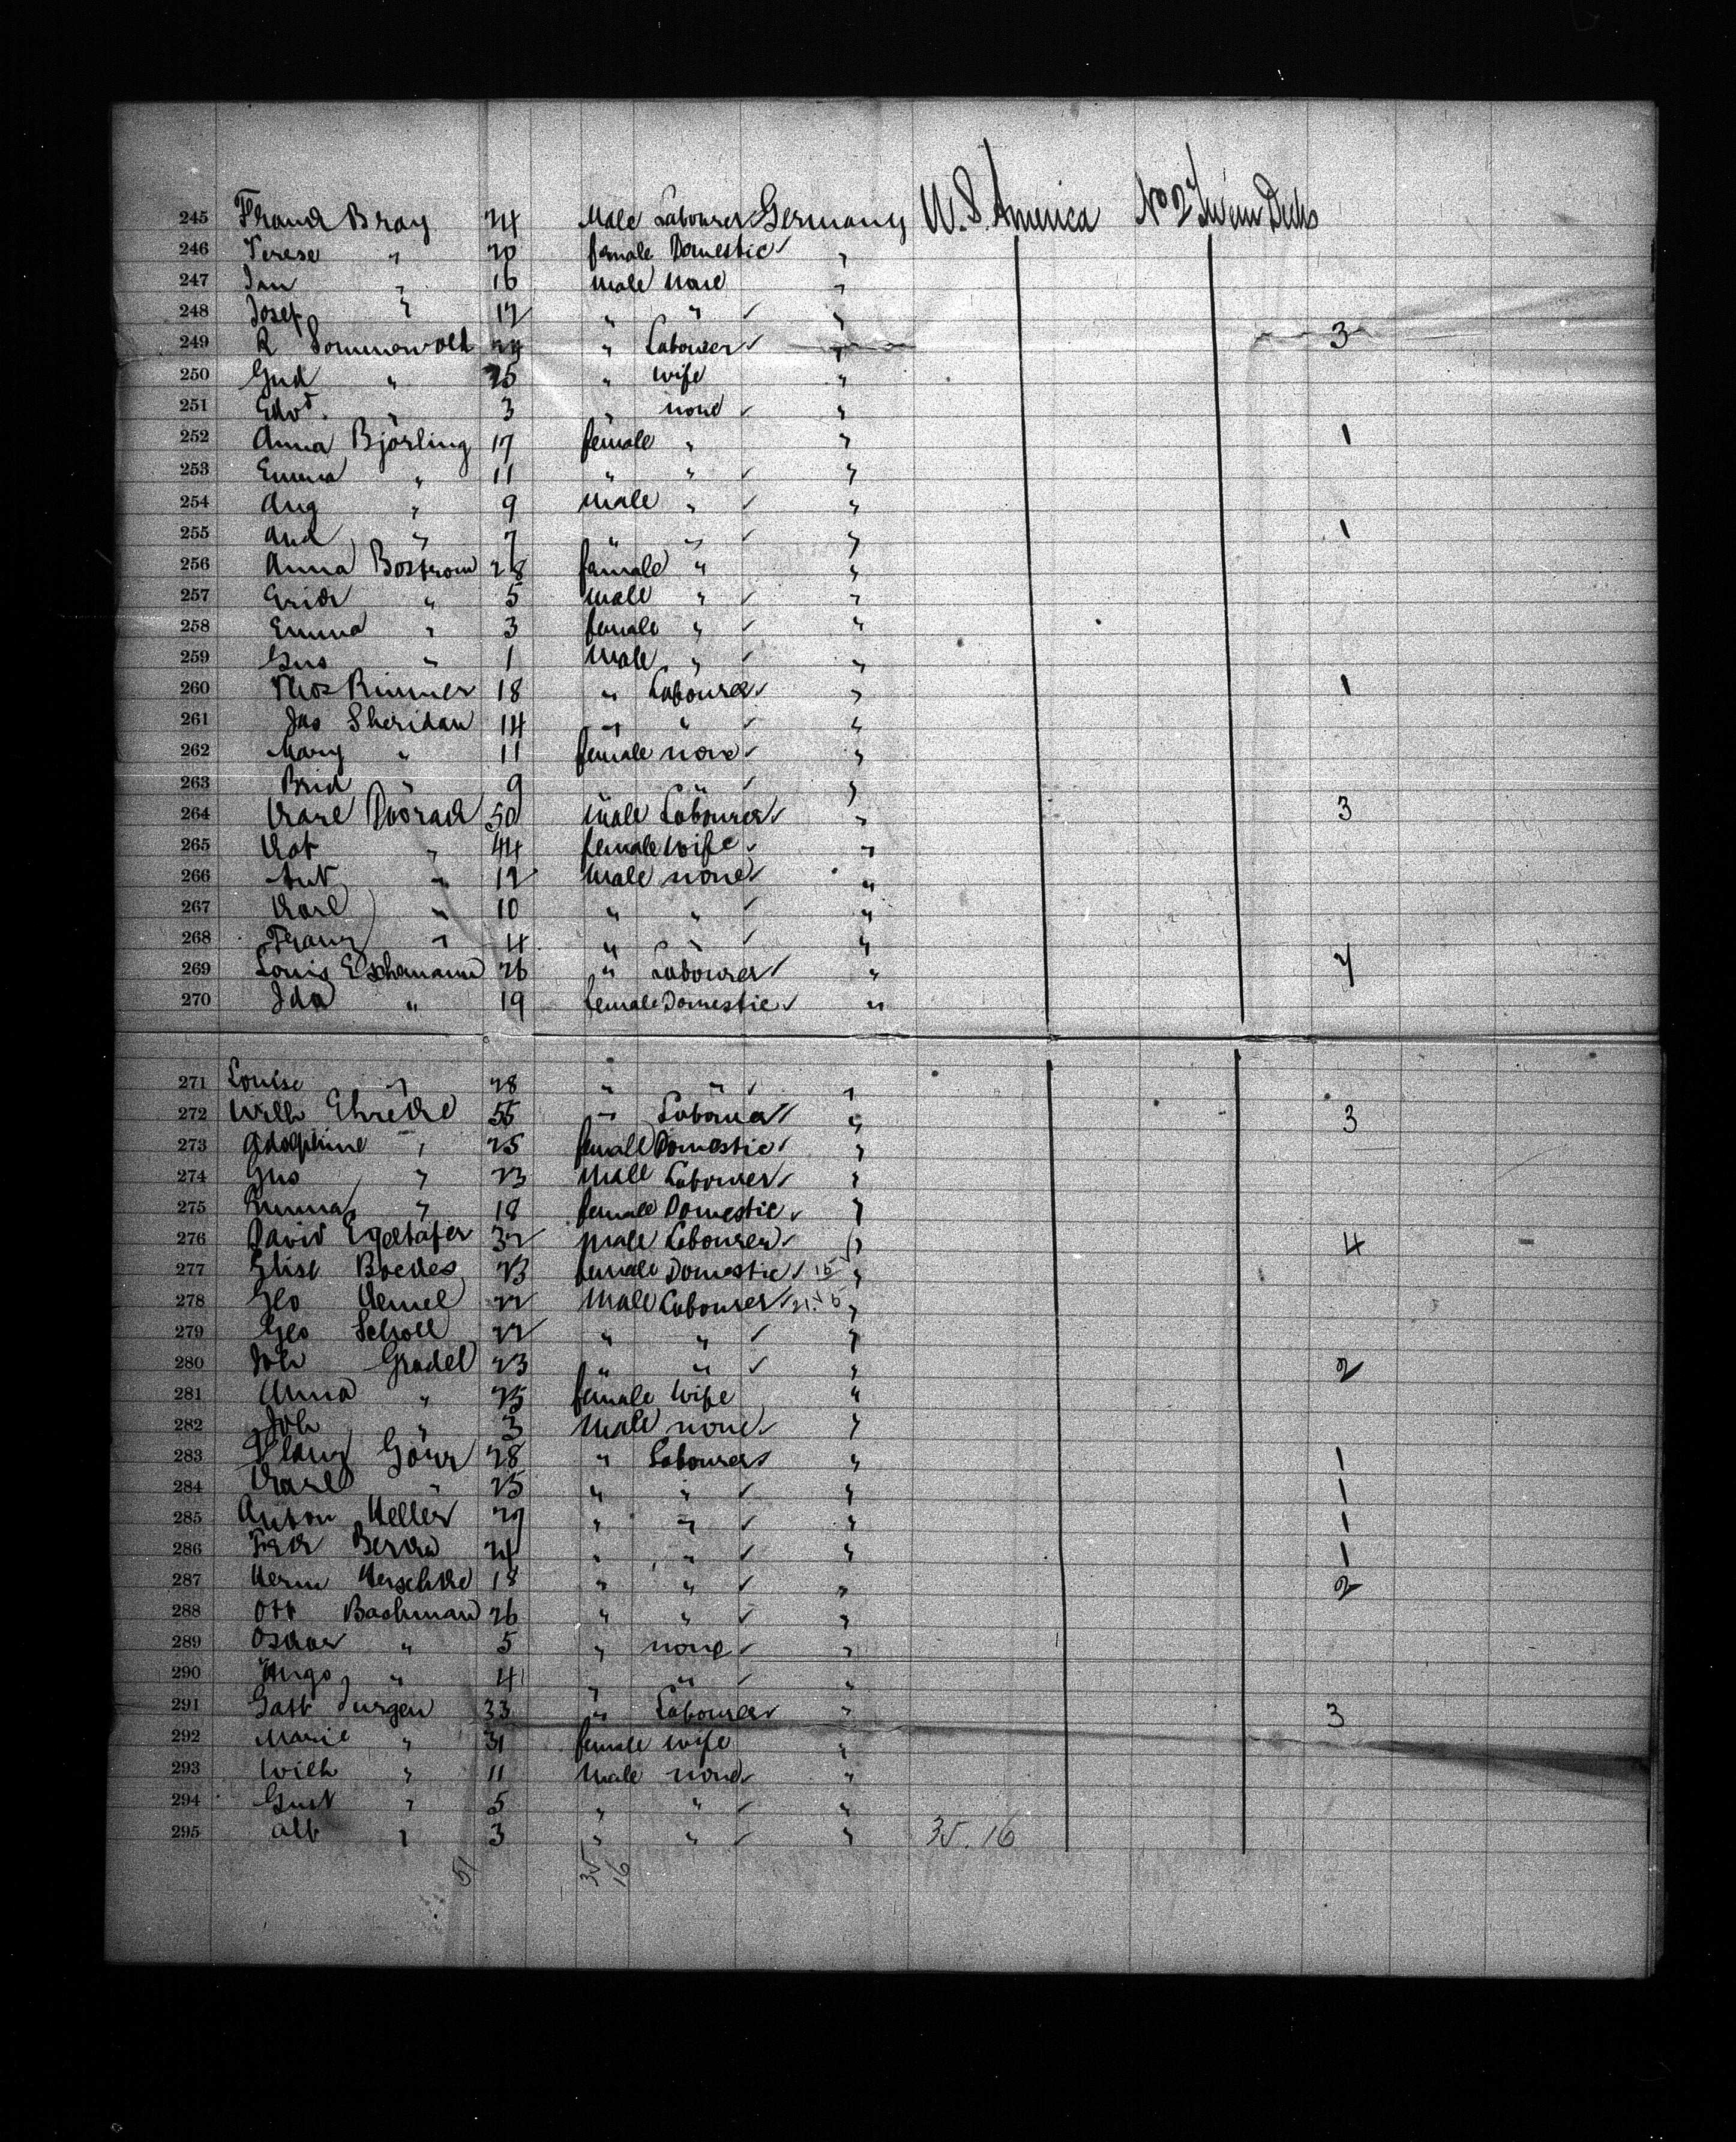 245 Frank Bray 24 Male Labourer Germany U.S. America No 2 Tween Decks
246 Terese " 20 female Domestic "
247 Jan " 16 male none "
248 Josef " 12 " " "
249 R Sommerwolk " Labourer " 3
250 Gud " 25 " wife "
251 Edvd. " 3 " none "
252 Anna Björling 17 female " " 1
253 Emma " 11 " " "
254 Aug " 9 male " "
255 And " 7 " " " 1
256 Anna Bostrom 28 female " "
257 Erick " 5 male " "
258 Emma " 3 female " "
259 Gus " 1 male " "
260 Thos Rimmer 18 " Labourer " 1
261 Jas Sheridan 14 " " "
262 Mary " 11 female none "
263 Brid " 9 " "
264 Karl Dvorack 50 male Labourer " 3
265 Kat " 44 female wife "
266 Ant " 12 male none "
267 Karl " 10 " " "
268 Franz " 4 " " "
269 Louis Eschmann 26 " Labourer "
270 Ida " 19 female Domestic "
271 Louise " 28 " " "
272 Wilh Ehricke 55 " Labourer " 3
273 Adolphine " 25 female Domestic "
274 Gus " 23 male Labourer "
275 Emma " 18 female Domestic "
276 David 32 male Labourer " 4
277 Elise Boedes 23 female Domestic 15 "
278 Geo Hemel 22 male Labourer "
279 Geo Scholl 22 " " "
280 Joh Gradel 23 " " " 2
281 Anna " 25 female wife "
282 Joh " 3 male none "
283 Franz Görr 28 " Labourer " 1
284 Karl " 25 " " " 1
285 Anton Heller 29 " " " 1
286 Fredr 24 " " " 1
287 Herm Herschke 18 " " " 2
288 Ott Bachman 26 " " "
289 Oskar " 5 " none "
290 Hugo " 4 " " "
291 Gatt Jurgen 33 " Labourer " 3
292 Marie " 31 female wife "
293 Wilh " 11 male none "
294 Gust " 5 " " "
295 Alb " 3 " " " 35.16
51 35 16